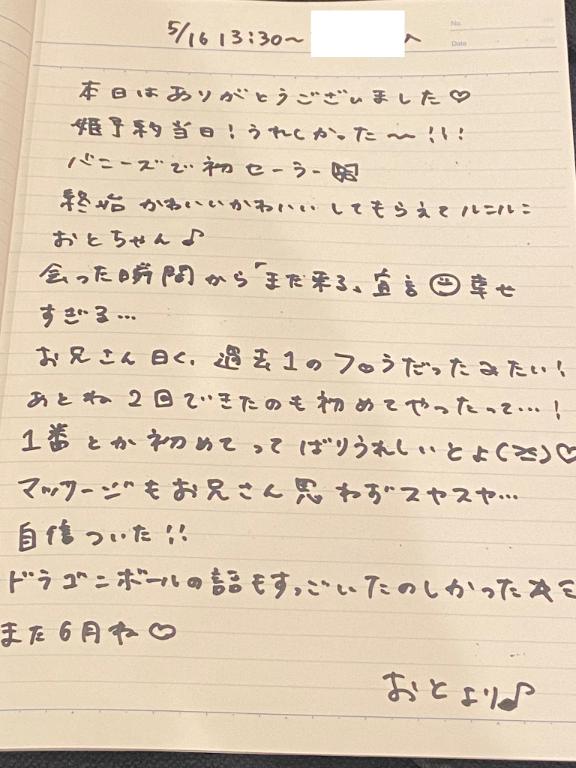 5/16 13:30〜 へ
No.
Date
本日はありがとうございました♡
姫予約当日！うれしかった〜!!!
バニーズで初セーラー
終始かわいいかわいいしてもらえてルンルン
おとちゃん♪
会った瞬間から「また来る」宣言☺幸せ
すぎる…
お兄さん曰く、過去1のフロうだったみたい！
あとね2回できたのも初めてやったって…！
1番とか初めてってばりうれしいとよ(≧≦)♡
マッサージもお兄さん思わずスヤスヤ…
自信ついた!!
ドラゴンボールの話もすっごいたのしかった☆ミ
また6月ね♡
おとより♪